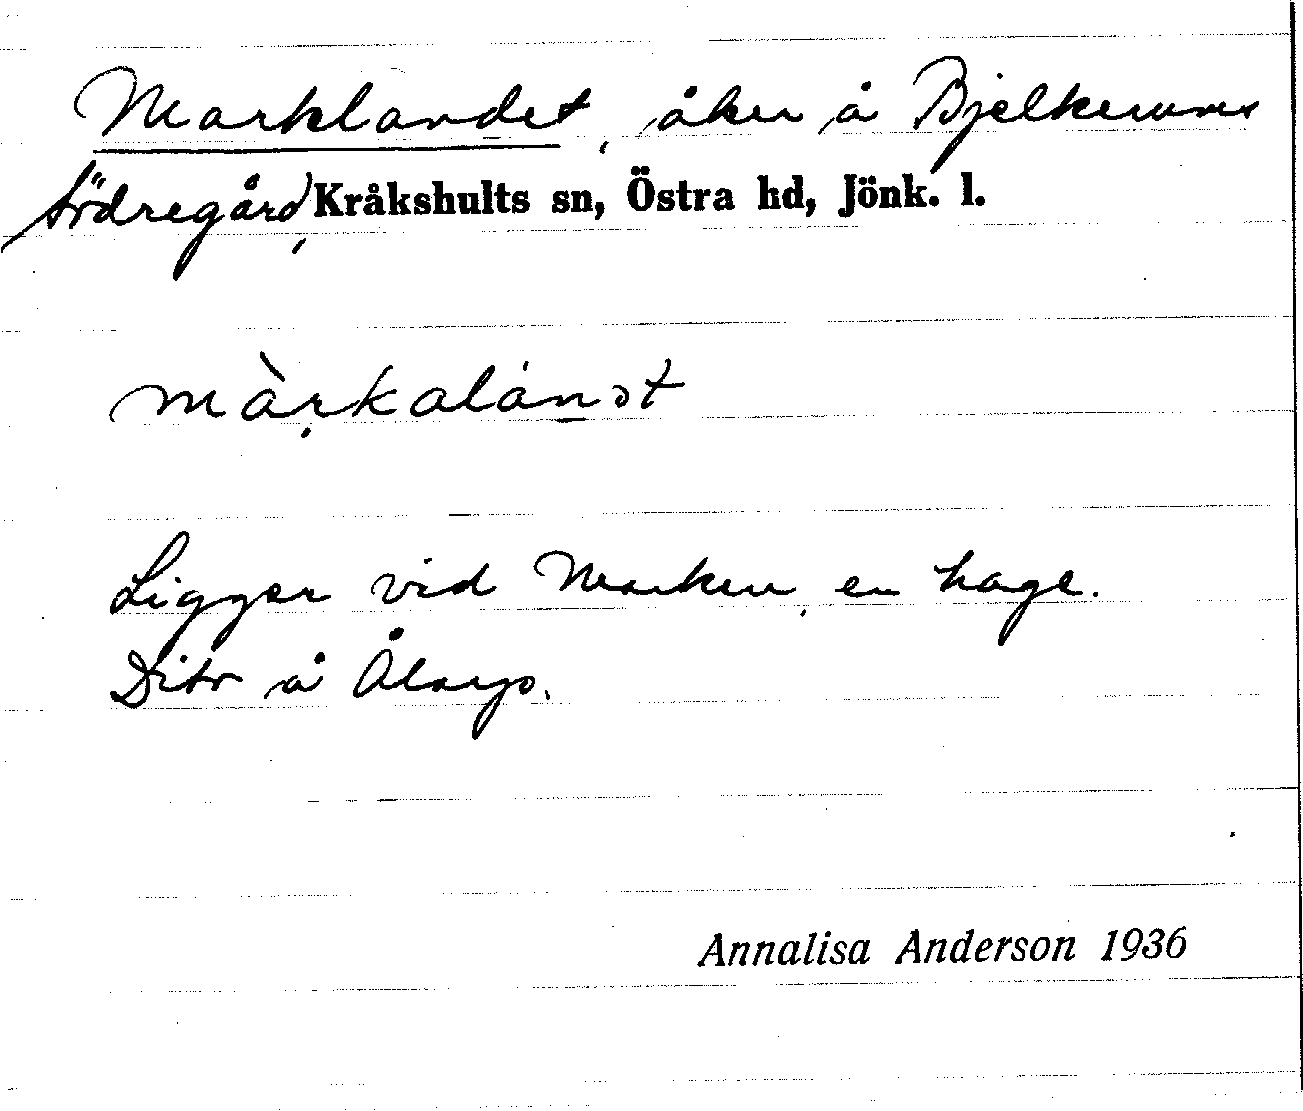 Marklandet, åker å Bjelkerums
Södregård, Kråkshults sn, Östra hd, Jönk. l.
Ligger vid Marken, en hage.
Ditо å Ålarps.
Annalisa Anderson 1936